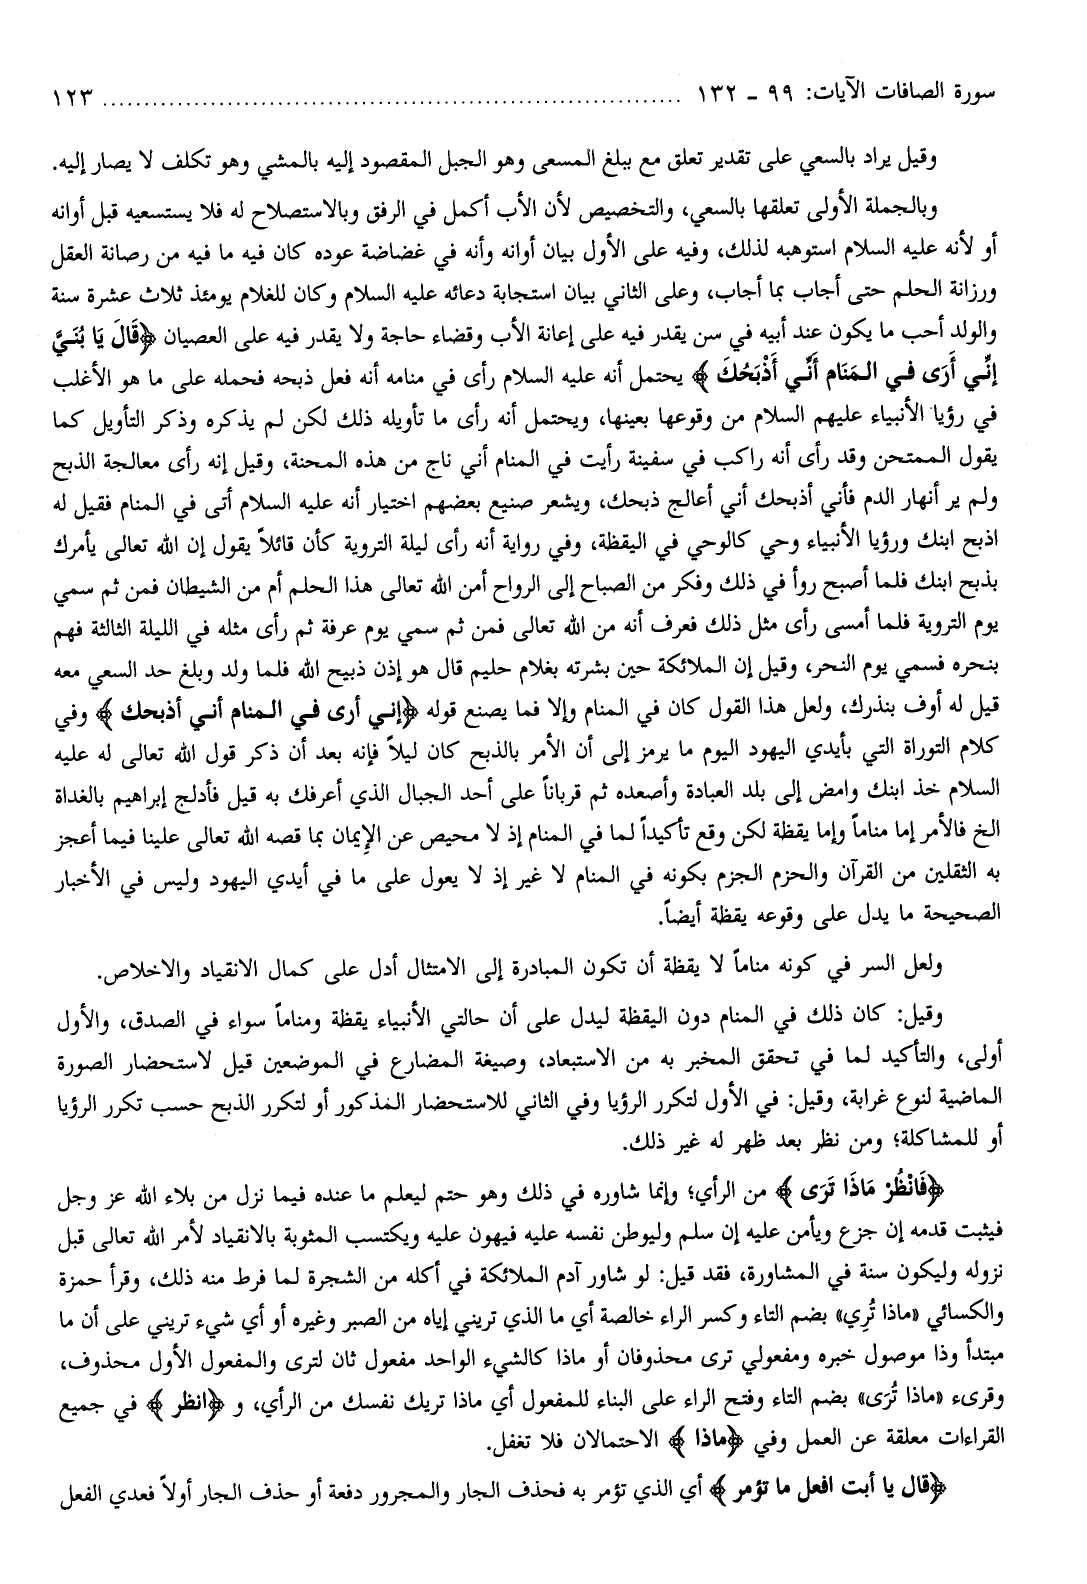 سورة الصافات الآيات: ٩٩ - ١٣٢ ........................................................................ ١٢٣
وقيل يراد بالسعي على تقدير تعلق مع ببلغ المسعى وهو الجبل المقصود إليه بالمشي وهو تكلف لا يصار إليه.
وبالجملة الأولى تعلقها بالسعي، والتخصيص لأن الأب أكمل في الرفق وبالاستصلاح له فلا يستسعيه قبل أوانه
أو لأنه عليه السلام استوهبه لذلك، وفيه على الأول بيان أوانه وأنه في غضاضة عوده كان فيه ما فيه من رصانة العقل
ورزانة الحلم حتى أجاب بما أجاب، وعلى الثاني بيان استجابة دعائه عليه السلام وكان للغلام يومئذ ثلاث عشرة سنة
والولد أحب ما يكون عند أبيه في سن يقدر فيه على إعانة الأب وقضاء حاجة ولا يقدر فيه على العصيان ﴿قَالَ يَا بُنَيَّ
إنِّي أَرَى في المَنَام أَنِّي أَذْبَحُكَ﴾ يحتمل أنه عليه السلام رأى في منامه أنه فعل ذبحه فحمله على ما هو الأغلب
في رؤيا الأنبياء عليهم السلام من وقوعها بعينها، ويحتمل أنه رأى ما تأويله ذلك لكن لم يذكره وذكر التأويل كما
يقول الممتحن وقد رأى أنه راكب في سفينة رأيت في المنام أني ناج من هذه المحنة، وقيل إنه رأى معالجة الذبح
ولم ير أنهار الدم فأني أذبحك أني أعالج ذبحك، ويشعر صنيع بعضهم اختيار أنه عليه السلام أتى في المنام فقيل له
اذبح ابنك ورؤيا الأنبياء وحي كالوحي في اليقظة، وفي رواية أنه رأى ليلة التروية كأن قائلاً يقول إن الله تعالى يأمرك
بذبح ابنك فلما أصبح روأ في ذلك وفكر من الصباح إلى الرواح أمن الله تعالى هذا الحلم أم من الشيطان فمن ثم سمي
يوم التروية فلما أمسى رأى مثل ذلك فعرف أنه من الله تعالى فمن ثم سمي يوم عرفة ثم رأى مثله في الليلة الثالثة فهم
بنحره فسمي يوم النحر، وقيل إن الملائكة حين بشرته بغلام حليم قال هو إذن ذبيح الله فلما ولد وبلغ حد السعي معه
قيل له أوف بنذرك، ولعل هذا القول كان في المنام وإلا فما يصنع قوله ﴿إني أرى في المنام أني أذبحك﴾ وفي
كلام التوراة التي بأيدي اليهود اليوم ما يرمز إلى أن الأمر بالذبح كان ليلاً فإنه بعد أن ذكر قول الله تعالى له عليه
السلام خذ ابنك وامض إلى بلد العبادة وأصعده ثم قرباناً على أحد الجبال الذي أعرفك به قيل فأدلج إبراهيم بالغداة
الخ فالأمر إما مناماً وإما يقظة لكن وقع تأكيداً لما في المنام إذ لا محيص عن الإيمان بما قصه الله تعالى علينا فيما أعجز
به الثقلين من القرآن والحزم الجزم بكونه في المنام لا غير إذ لا يعول على ما في أيدي اليهود وليس في الأخبار
الصحيحة ما يدل على وقوعه يقظة أيضاً.
ولعل السر في كونه مناماً لا يقظة أن تكون المبادرة إلى الامتثال أدل على كمال الانقياد والاخلاص.
وقيل: كان ذلك في المنام دون اليقظة ليدل على أن حالتي الأنبياء يقظة ومناماً سواء في الصدق، والأول
أولى، والتأكيد لما في تحقق المخبر به من الاستبعاد، وصيغة المضارع في الموضعين قيل لاستحضار الصورة
الماضية لنوع غرابة، وقيل: في الأول لتكرر الرؤيا وفي الثاني للاستحضار المذكور أو لتكرر الذبح حسب تكرر الرؤيا
أو للمشاكلة؛ ومن نظر بعد ظهر له غير ذلك.
﴿فَانْظُرْ مَاذَا تَرَى﴾ من الرأي؛ وإنما شاوره في ذلك وهو حتم ليعلم ما عنده فيما نزل من بلاء الله عز وجل
فيثبت قدمه إن جزع ويأمن عليه إن سلم وليوطن نفسه عليه فيهون عليه ويكتسب المثوبة بالانقياد لأمر الله تعالى قبل
نزوله وليكون سنة في المشاورة، فقد قيل: لو شاور آدم الملائكة في أكله من الشجرة لما فرط منه ذلك، وقرأ حمزة
والكسائي «ماذا تُرِي» بضم التاء وكسر الراء خالصة أي ما الذي تريني إياه من الصبر وغيره أو أي شيء تريني على أن ما
مبتدأ وذا موصول خبره ومفعولي ترى محذوفان أو ماذا كالشيء الواحد مفعول ثان لترى والمفعول الأول محذوف،
وقرىء «ماذا تُرَى» بضم التاء وفتح الراء على البناء للمفعول أي ماذا تريك نفسك من الرأي، و ﴿انظر﴾ في جميع
القراءات معلقة عن العمل وفي ﴿ماذا﴾ الاحتمالان فلا تغفل.
﴿قال يا أبت افعل ما تؤمر﴾ أي الذي تؤمر به فحذف الجار والمجرور دفعة أو حذف الجار أولاً فعدي الفعل